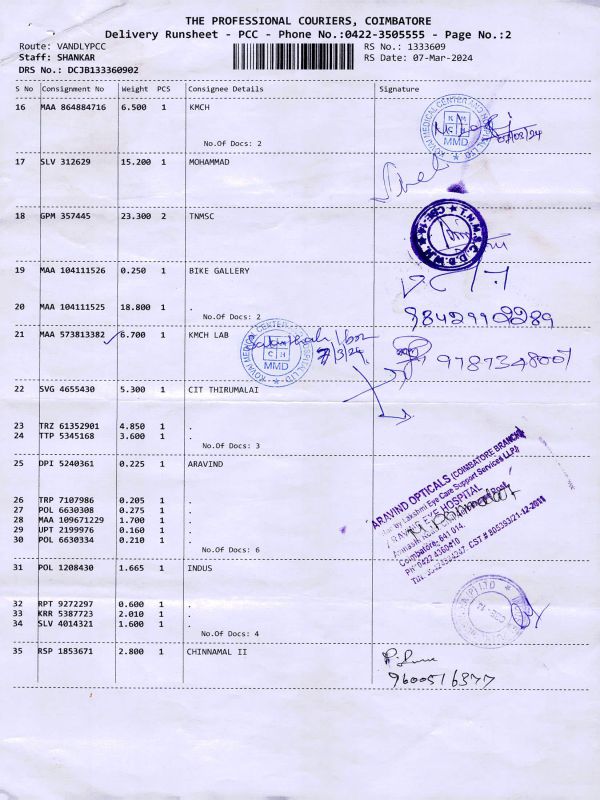 THE PROFESSIONAL COURIERS, COIMBATORE
Delivery Runsheet - PCC - Phone No.:0422-3505555 - Page No.:2
Route: VANDLYPCC RS No.: 1333609
Staff: SHANKAR RS Date: 07-Mar-2024
DRS No.: DCJB133360902
S No Consignment No Weight PCS Consignee Details Signature
16 MAA 864884716 6.500 1 KMCH
No.Of Docs: 2
17 SLV 312629 15.200 1 MOHAMMAD
18 GPM 357445 23.300 2 TNMSC
19 MAA 104111526 0.250 1 BIKE GALLERY
20 MAA 104111525 18.800 1 .
No.Of Docs: 2
9842990289
21 MAA 573813382 6.700 1 KMCH LAB
7/3/24
9787348007
22 SVG 4655430 5.300 1 CIT THIRUMALAI
23 TRZ 61352901 4.850 1 .
24 TTP 5345168 3.600 1 .
No.Of Docs: 3
25 DPI 5240361 0.225 1 ARAVIND
26 TRP 7107986 0.205 1 .
27 POL 6630308 0.275 1 .
28 MAA 109671229 1.700 1 .
29 UPT 2199976 0.160 1 .
30 POL 6630334 0.210 1 .
No.Of Docs: 6
ARAVIND OPTICALS (COIMBATORE BRANCH)
by Lakshmi Eye Care Support Services LLP)
ARAVIND EYE HOSPITAL
Coimbatore- 641 014.
PH: 0422 4360410
31 POL 1208430 1.665 1 INDUS
32 RPT 9272297 0.600 1 .
33 KRR 5387723 2.010 1 .
34 SLV 4014321 1.600 1 .
No.Of Docs: 4
35 RSP 1853671 2.800 1 CHINNAMAL II
9600516377